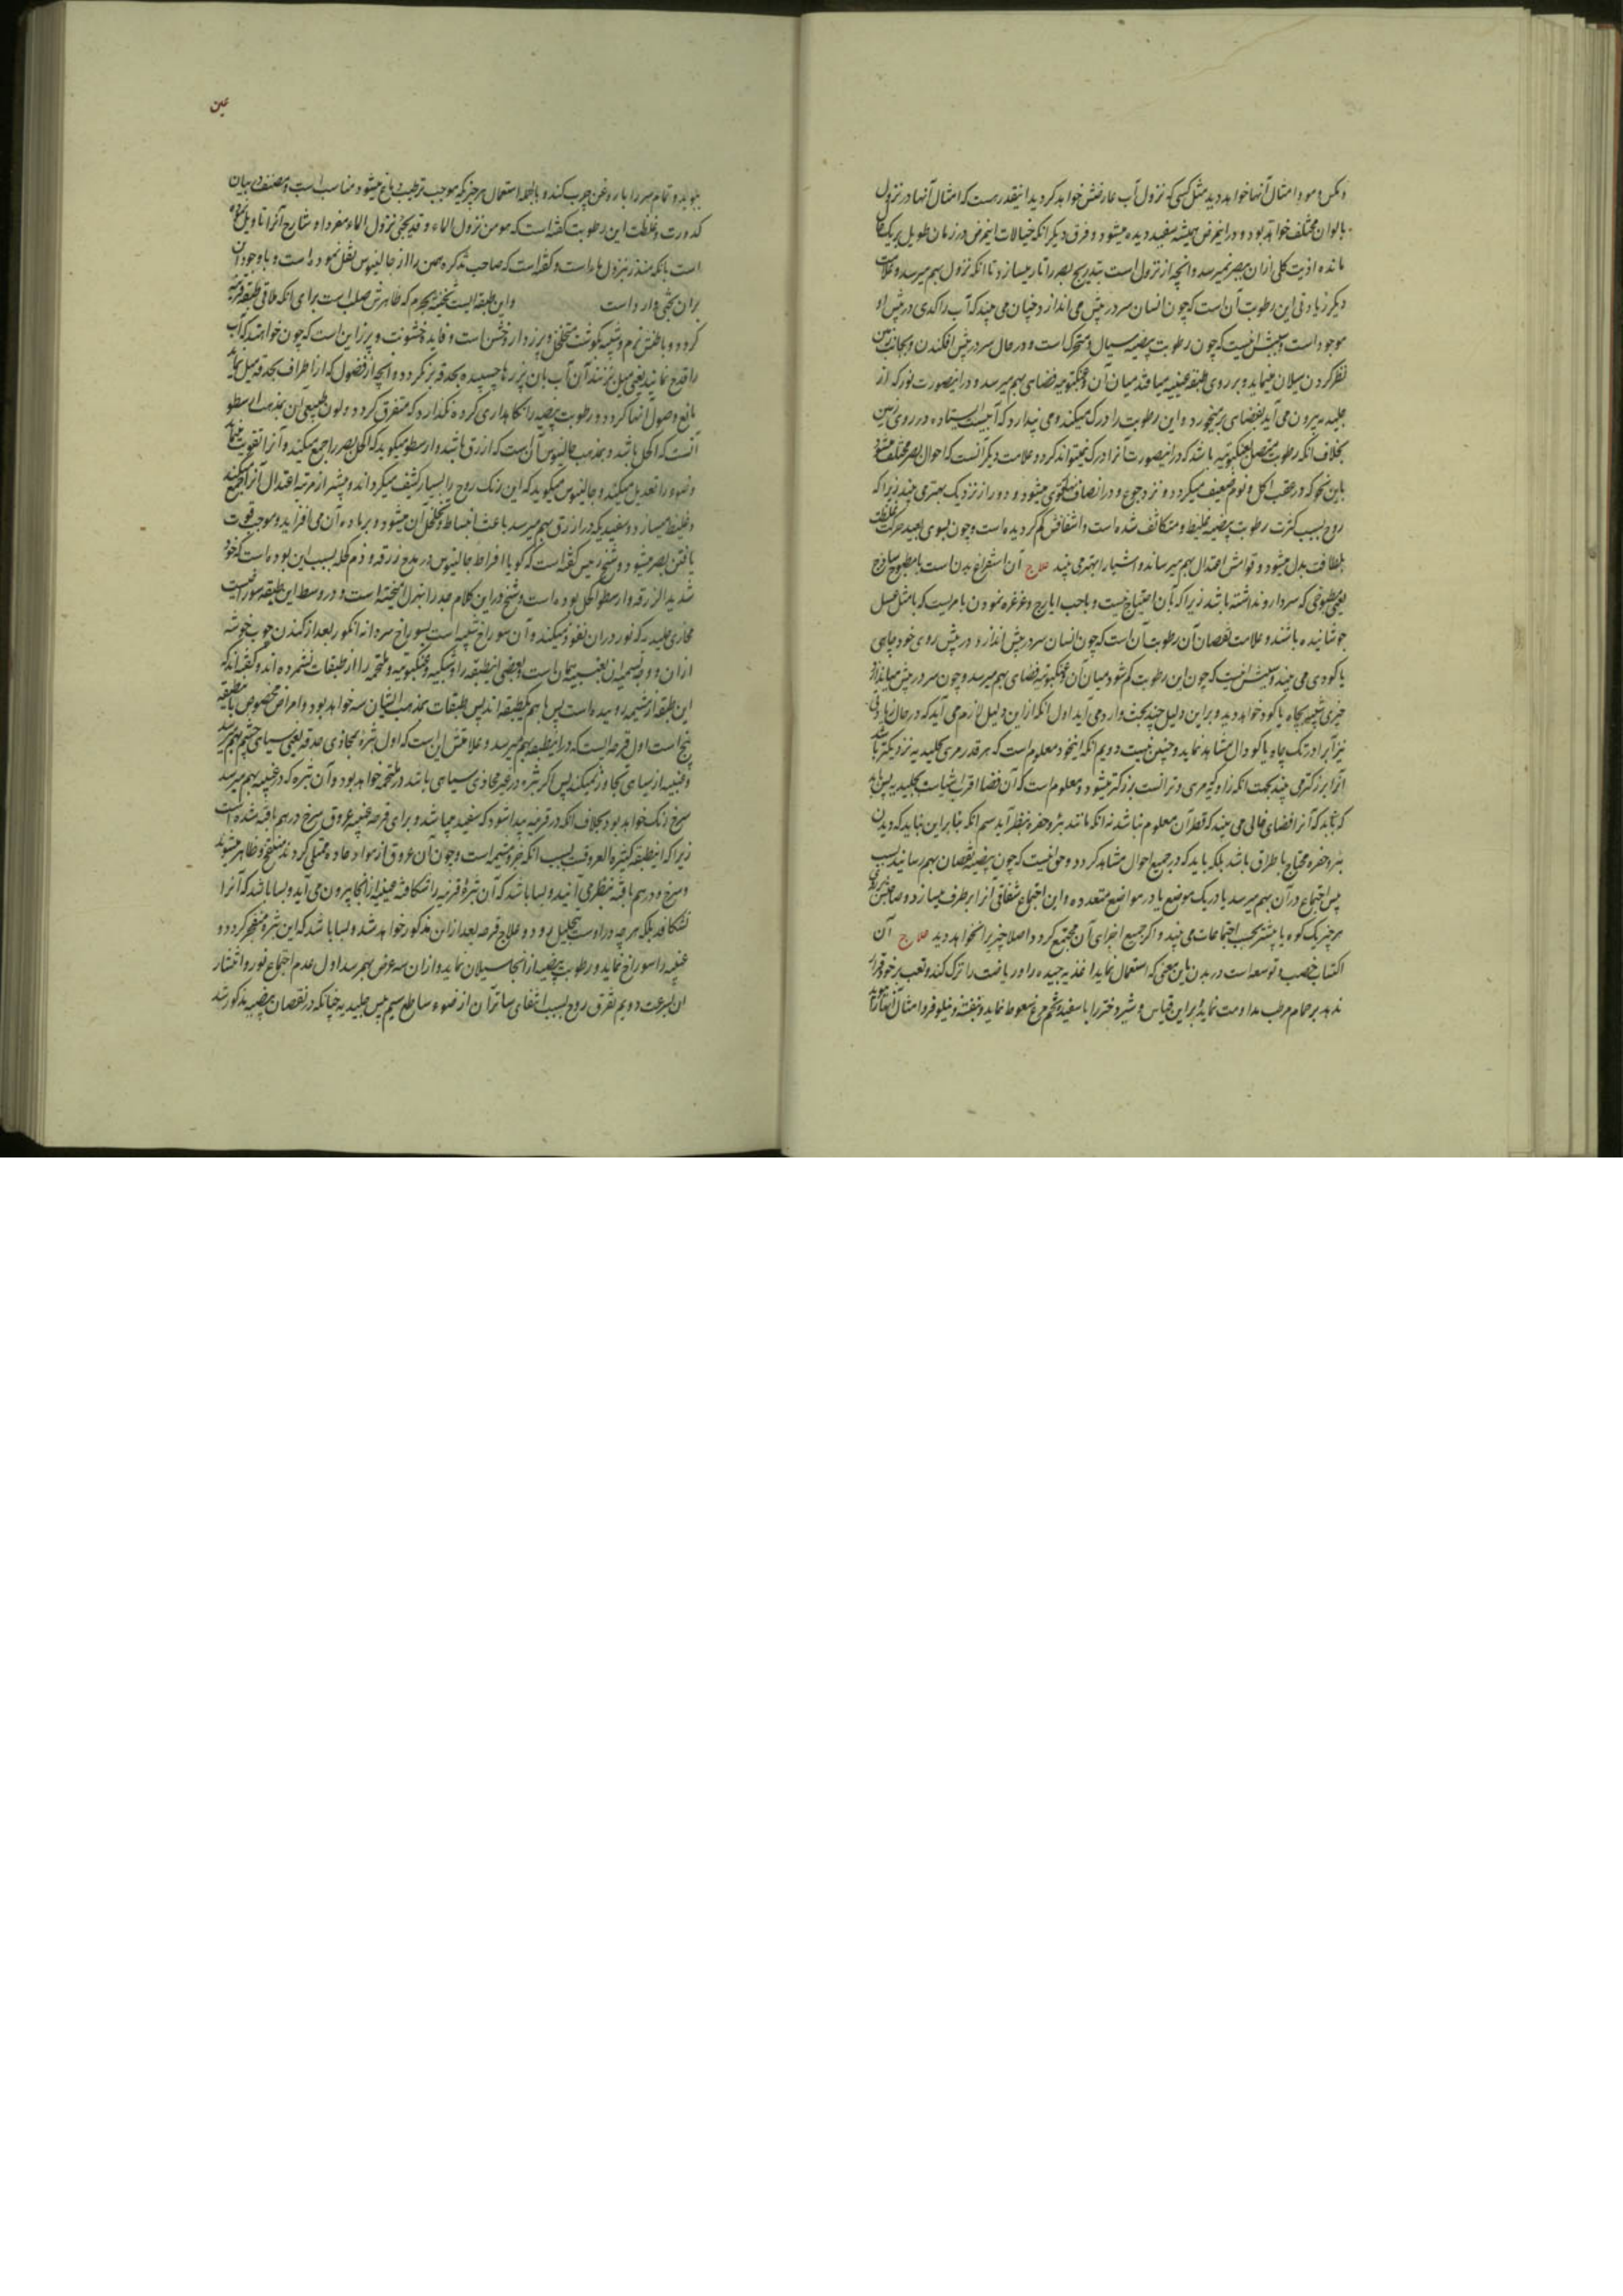 ومکس و مو و امثال آنها خواهد دید مثل کسی که نزول آب عارضش خواهد کردید اینقدر هست که امثال آنها در نزول
بالوان مختلف خواهد بود و در اینمرض همیشه سفید دیده میشود و فرق دیگر انکه خیالات اینمرض در زمان طویل بر یک حال
مانده اذیت کلی از ان ببصر نمیرسد و انچه از نزول است بتدریج بصر را تار میسازد تا انکه نزول بهم میرسد و علامت
دیگر زیادتی این رطوبت آن است که چون انسان سر در پیش می اندازد چنان می بیند که آب راکدی در پیش او
موجود است و سببش اینست که چون رطوبت بیضیه سیال و متحرک است و در حال سر در پیش افکندن و بجانب زمین
نظر کردن سیلان مینماید و بر روی طبقه عنبیه میافتد میان آن و عنکبوتیه فضای بهم میرسد و در اینصورت نور که از
جلیدیه بیرون می آید بفضای بر میخورد و این رطوبت را درک میکند و می پندارد که آبیست ایستاده در روی زمین
بخلاف انکه رطوبت متصل بعنکبوتیه باشد که در اینصورت آنرا درک نمیتواند کرد و علامت دیگر آنست که احوال بصر مختلف میشود
باین نحو که در عقب اکل و نوم ضعیف میکردد و نزد جوع و در انصاف نهار قوی میشود و دور از نزدیک بهتر می بیند زیرا که
روح بسبب کثرت رطوبت بیضیه غلیظ و متکاثف شده است و اشفافش کم گردیده است و چون بسوی بعید حرکت غلظت
بلطافت بدل میشود و قوامش اعتدال بهم میرساند و اشیا را بهتر می بیند علاج آن استفراغ بدن است با مطبوخ ساذج
یعنی مطبوخی که سردارو نداشته باشد زیرا که بآن احتیاج نیست و با حب ایارج و غرغره نمودن با مریست که با مثل عسل
جوشانیده باشند و علامت نقصان آن رطوبت آن است که چون انسان سر در پیش اندازد در پیش روی خود چاهی
یا کوه‌ی می بیند و سببش اینست که چون این رطوبت کم شود میان آن و عنکبوتیه فضای بهم میرسد و چون سر در پیش میاندازد
چیزی شبیه بچاه یا کود خواهد دید و بر این دلیل چند بحث وارد می آید اول انکه از این دلیل لازم می آید که در حال زیادتی
نیز آبرا در تک چاه یا کودال مشاهده نماید و چنین نیست دویم انکه اینخود معلوم است که هر قدر مری بجلیدیه نزدیکتر باشد
آنرا بزرکتر می بیند بجهت انکه زاویه مری و تر انست بزرکتر میشود و معلوم است که آن فضا اقرب اشیاست بجلیدیه پس باید
که بباید که آنرا فضای عالی می بیند که قطر آن معلوم نباشد نه انکه مانند بئر و حفره بنظر آید سیم انکه بنابر این نباید که دیدن
بئر و حفره محتاج باطراق باشد بلکه باید که در جمیع احوال مشاهد کردد و حق اینست که چون بیضیه نقصان بهم رسانید بسبب
پس اجتماع در آن بهم میرسد یا در یک موضع یا در مواضع متعدده و این اجتماع شفافی آنرا بر طرف میسازد و صاحبش
هر چیز یک کوه یا بیشتر بحسب اجتماعات می بیند و اکر جمیع اجزای آن مجتمع کردد اصلا چیزیرا نخواهد دید علاج آن
اکتساب خصب و توسعه است در بدن باین معنی که استعمال نماید اغذیه جیده را و ریاضت را ترک کند و تعب بر خود قرار
ندهد بر حمام مرطب مداومت نماید و بر این قیاس و شیر دختر را با سفیده تخم مرغ سعوط نماید و بنفشه و نیلوفر و امثال آنها را
عین
ببوید و تمام سر را بار روغن چرب کند و بالجمله استعمال هر چیز که موجب ترطیب دماغ میشود مناسب است و مصنف در بیان
کدورت و غلظت این رطوبت کفته است که هو من نزول الماء و قد یجئ نزول الماء مفردا و شارح آنرا تاویل نموده
است بانکه منذر بنزول ماء است و کفته است که صاحب تذکره همین را از جالینوس نقل نموده است و باوجود آن
بر ان بحثی وارد است و این طبقه ایست ثخینه الجرم که ظاهرش صلب است برای انکه ملاقی طبقه قرنیه
کردد و باطنش نرم و شبیه بکوشت متخلخل و پرزدار و خشن است و فایده خشونت و پرز این است که چون خواهند که آب
را قدح نمایند یعنی میل بزنند آن آب بان پرزها چسبیده بحدقه بر نکردد و انچه از فضول که از اطراف بحدقه میل نماید
مانع وصول انها کردد و رطوبت بیضیه را نکاهداری کرده نکذارد که متفرق کردد و لون طبیعی آن بمذهب ارسطو
آنست که اکحل باشد و بمذهب جالینوس آن است که ازرق باشد و ارسطو میکوید که اکحل بصر را جمع میکند و آنرا تقویت مینماید
و ضوء را تعدیل میکند و جالینوس میکوید که این رنک روح را بسیار کثیف میکرداند و بیشتر از مرتبه اعتدال آنرا جمع میکند
و غلیظ میسازد و سفیدیکه در ازرق بهم میرسد باعث انبساط و تخلخل آن میشود و بر ماده آن می افزاید و موجب قوت
یافتن بصر میشود و شیخ رئیس کفته است که کویا افراط جالینوس در مدح زرقه و ذم کحله بسبب این بوده است که خود
شدید الزرقه و ارسطو اکحل بوده است و شیخ در این کلام جد را بهزل آمیخته است و در وسط این طبقه سوراخیست
محاذی جلیدیه که نور در ان نفوذ میکند و آن سوراخ شبیه است بسوراخ سر دانه انکور بعد از کندن چوب خوشه
از ان و وجه تسمیه ان بعنبیه همان است و بعضی اینطبقه را و شبکیه و عنکبوتیه و ملتحمه را از طبقات نشمرده اند و کفته اند که
این طبقه از مشیمیه روئیده است پس با هم یکطبقه اند پس طبقات بمذهب ایشان سه خواهد بود و امراض مخصوص باینطبقه
پنج است اول قرحه ایست که در اینطبقه بهم میرسد و علامتش این است که اول بثرۀ بمحاذی حدقه یعنی سیاهی چشم بهم میرسد
و عنبیه از سیاهی تجاوز نمیکند پس اکر بثره در غیر محاذی سیاهی باشد در ملتحمه خواهد بود و آن بثره که در عنبیه بهم میرسد
سرخ رنک خواهد بود بخلاف انکه در قرنیه پیدا شود که سفید میباشد و برای قرحه عنبیه عروق سرخ در هم بافته شده است
زیرا که اینطبقه کثیرة العروقست بسبب انکه جزو مشیمیه است و چون آن عروق از مواد حاده ممتلی کردند منتفخ و ظاهر میشوند
و سرخ و در هم بافته بنظر می آیند و بسا باشد که آن بثرۀ قرنیه را شکافته عنبیه از انجا بیرون می آید و بسا باشد که آنرا
نشکافد بلکه هر چه در اوست بتحلیل رود و علاج قرحه بعد از این مذکور خواهد شد و بسا باشد که این بثره منفجر کردد و
عنبیه را سوراخ نماید و رطوبت بیضیه از انجا سیلان نماید و از ان سه عرض بهم رسد اول عدم اجتماع نور و انتشار
ان بسرعت دویم تفرق روح بسبب انتفای ساتر آن از ضوء ساطع سیم یبس جلیدیه چنانکه در نقصان بیضیه مذکور شد